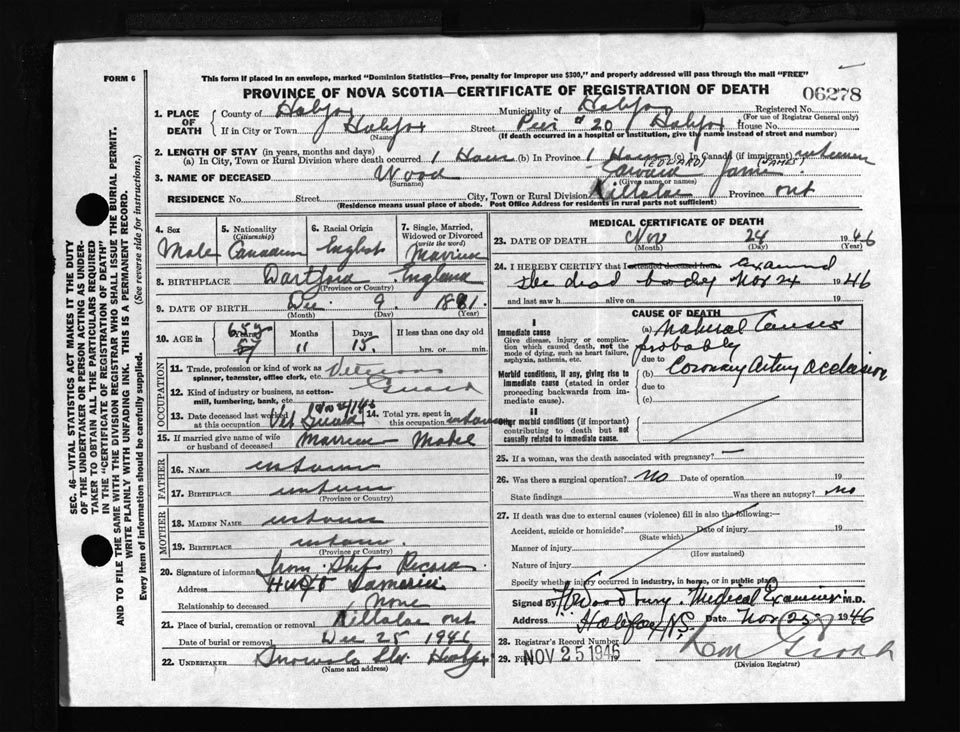 FORM 6
This form if placed in an envelope, marked "Dominion Statistics—Free, penalty for improper use $300," and properly addressed will pass through the mail "FREE"
PROVINCE OF NOVA SCOTIA—CERTIFICATE OF REGISTRATION OF DEATH
06278
1. PLACE OF DEATH
County of Halifax Municipality of Halifax Registered No.
(For use of Registrar General only)
If in City or Town Halifax Street Pier # 20 Halifax House No.
(Name) (If death occurred in a hospital or institution, give the name instead of street and number)
2. LENGTH OF STAY (in years, months and days)
(a) In City, Town or Rural Division where death occurred 1 Hour (b) In Province 1 Hour (c) In Canada (if immigrant) unknown
(EDWARD) (JAMES)
3. NAME OF DECEASED Wood Edward James
(Surname) (Given name or names)
RESIDENCE No. Street City, Town or Rural Division Killaloe Province Ont
(Residence means usual place of abode. Post Office Address for residents in rural parts not sufficient)
4. Sex Male
5. Nationality (Citizenship) Canadian
6. Racial Origin English
7. Single, Married, Widowed or Divorced (write the word) Married
8. BIRTHPLACE Dartford England
(Province or Country)
9. DATE OF BIRTH Dec 9 1881
(Month) (Day) (Year)
10. AGE in Years Months Days If less than one day old
65 11 15 hrs. or min.
OCCUPATION
11. Trade, profession or kind of work as spinner, teamster, office clerk, etc. Veterans
12. Kind of industry or business, as cotton-mill, lumbering, bank, etc. Guard
13. Date deceased last worked at this occupation Vet Guard
14. Total yrs. spent in this occupation unknown
15. If married give name of wife or husband of deceased Married Mabel
FATHER
16. NAME unknown
17. BIRTHPLACE unknown
(Province or Country)
MOTHER
18. MAIDEN NAME unknown
19. BIRTHPLACE unknown
(Province or Country)
20. Signature of informant from Ships Record
Address Samaria
Relationship to deceased None
21. Place of burial, cremation or removal Killaloe Ont
Date of burial or removal Dec 25 1946
22. UNDERTAKER Snow & Co Ltd Halifax
(Name and address)
MEDICAL CERTIFICATE OF DEATH
23. DATE OF DEATH Nov 24 1946
(Month) (Day) (Year)
24. I HEREBY CERTIFY that I attended deceased from examined
the dead body Nov 24 1946
and last saw h alive on 19
CAUSE OF DEATH
I
Immediate cause
Give disease, injury or complication which caused death, not the mode of dying, such as heart failure, asphyxia, asthenia, etc.
(a) Natural Causes
probably
due to
Morbid conditions, if any, giving rise to immediate cause (stated in order proceeding backwards from immediate cause).
(b) Coronary Artery occlusion
due to
(c)
II
Other morbid conditions (if important) contributing to death but not causally related to immediate cause.
25. If a woman, was the death associated with pregnancy? —
26. Was there a surgical operation? No Date of operation 19
State findings Was there an autopsy? No
27. If death was due to external causes (violence) fill in also the following:—
Accident, suicide or homicide? Date of injury 19
(State which)
Manner of injury
(How sustained)
Nature of injury
Specify whether injury occurred in industry, in home, or in public place
Signed by Woodbury. Medical Examiner M.D.
Address Halifax, N.S. Date Nov 25 1946
28. Registrar's Record Number
29. Filed NOV 25 1946
(Division Registrar)
SEC. 46—VITAL STATISTICS ACT MAKES IT THE DUTY
OF THE UNDERTAKER OR PERSON ACTING AS UNDERTAKER TO OBTAIN ALL THE PARTICULARS REQUIRED
IN THE "CERTIFICATE OF REGISTRATION OF DEATH"
AND TO FILE THE SAME WITH THE DIVISION REGISTRAR WHO SHALL ISSUE THE BURIAL PERMIT.
WRITE PLAINLY WITH UNFADING INK. THIS IS A PERMANENT RECORD.
Every item of information should be carefully supplied. (See reverse side for instructions.)